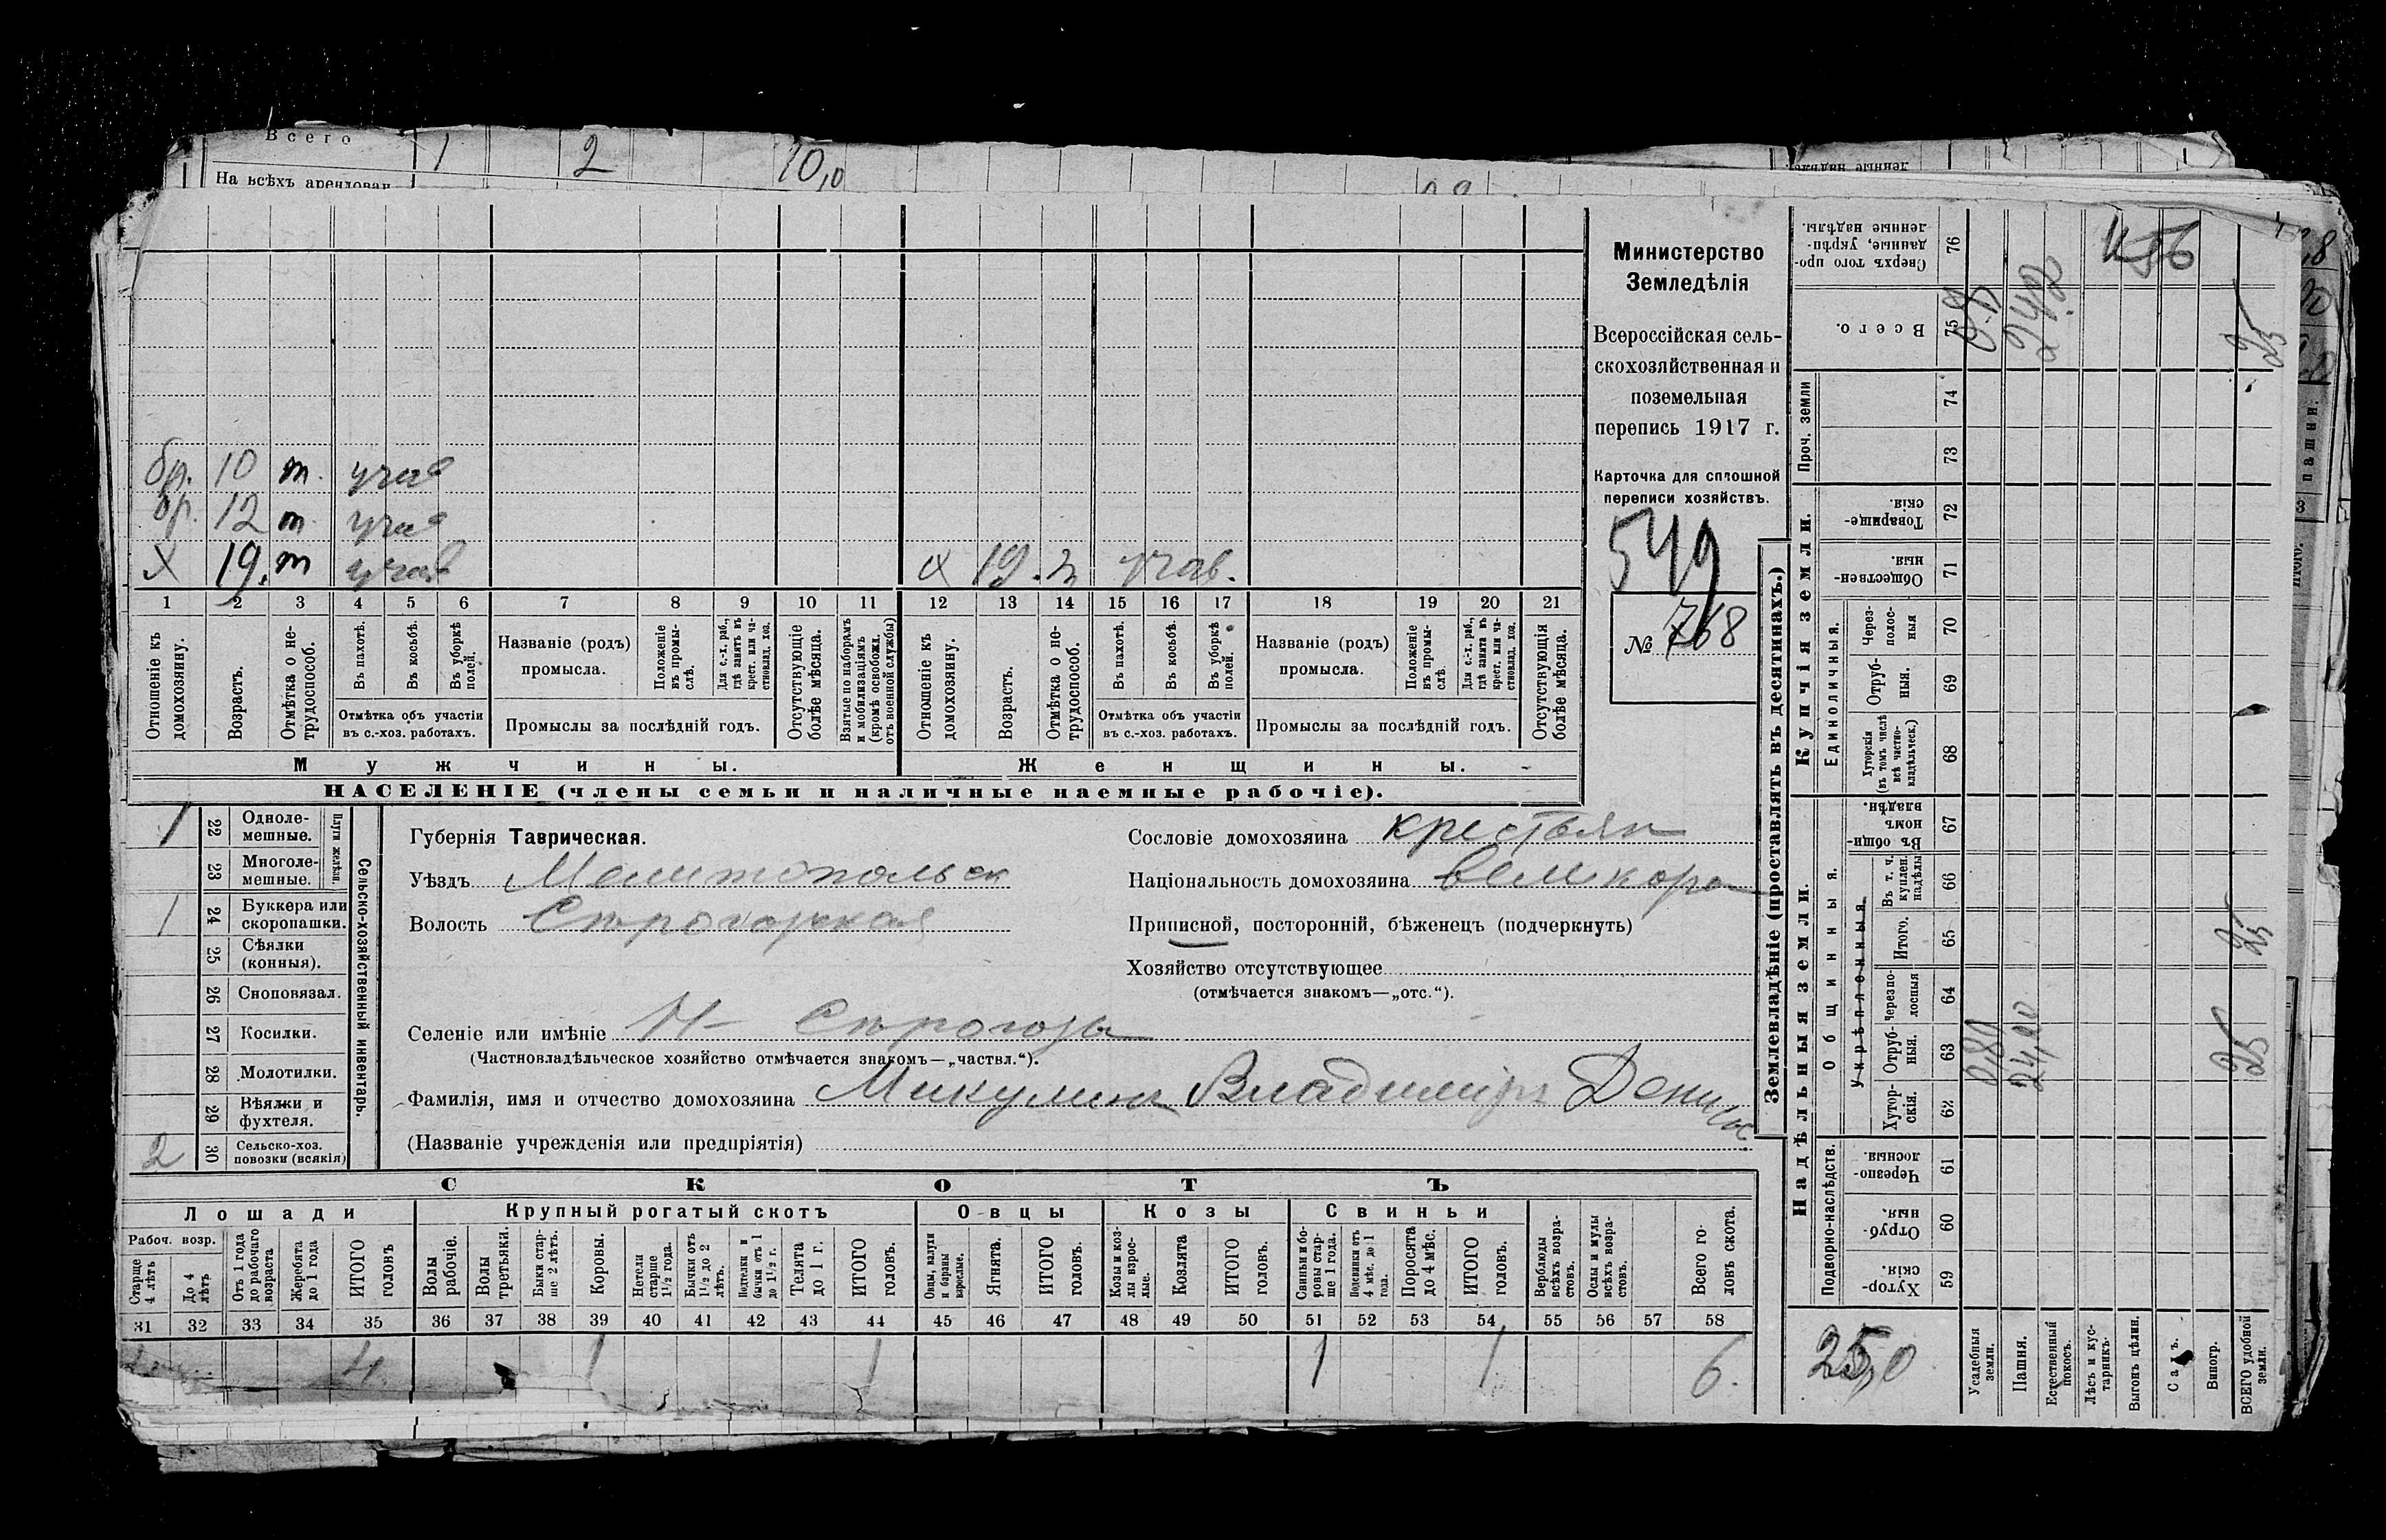 Всего 1 2 10,10
На всѣхъ арендован.
бр. 10 т. учав
бр. 12 т. учав
х 19. т учав х 19. т учав.
1 2 3 4 5 6 7 8 9 10 11 12 13 14 15 16 17 18 19 20 21
Отношеніе къ домохозяину.
Возрастъ.
Отмѣтка о не-
трудоспособ.
Въ пахотѣ.
Въ косьбѣ.
Въ уборкѣ
полей.
Отмѣтка объ участіи
въ с.-хоз. работахъ.
Названіе (родъ)
промысла.
Положеніе
въ промы-
слѣ.
Для с.-х. раб.,
гдѣ занятъ въ
крест. или ча-
стновлад. хоз.
Промыслы за послѣдній годъ.
Отсутствующіе
болѣе мѣсяца.
Взятые по наборамъ
и мобилизаціямъ
(кромѣ освобожд.
отъ военной службы)
Отношеніе къ
домохозяину.
Возрастъ.
Отмѣтка о не-
трудоспособ.
Въ пахотѣ.
Въ косьбѣ.
Въ уборкѣ
полей.
Отмѣтка объ участіи
въ с.-хоз. работахъ.
Названіе (родъ)
промысла.
Положеніе
въ промы-
слѣ.
Для с.-х. раб.,
гдѣ занята въ
крест. или ча-
стновлад. хоз.
Промыслы за послѣдній годъ.
Отсутствующія
болѣе мѣсяца.
Мужчины.
Женщины.
НАСЕЛЕНІЕ (члены семьи и наличные наемные рабочіе).
Министерство
Земледѣлія
Всероссійская сель-
скохозяйственная и
поземельная
перепись 1917 г.
Карточка для сплошной
переписи хозяйствъ.
549
№ 768
1 22 Одноле-
мешные.
23 Многоле-
мешные.
Плуги желѣзн.
1 24 Буккера или
скоропашки.
25 Сѣялки
(конныя).
26 Сноповязал.
27 Косилки.
28 Молотилки.
29 Вѣялки и
фухтеля.
2 30 Сельско-хоз.
повозки (всякія)
Сельско-хозяйственный инвентарь.
Губернія Таврическая.
Уѣздъ Мелитопольск
Волость Сѣрогозская
Селеніе или имѣніе Н- Сѣрогозы
(Частновладѣльческое хозяйство отмѣчается знакомъ—„частвл.“).
Фамилія, имя и отчество домохозяина Микулинъ Владимиръ Денисъ
(Названіе учрежденія или предпріятія)
Сословіе домохозяина крестьян
Національность домохозяина великоро
Приписной, посторонній, бѣженецъ (подчеркнуть)
Хозяйство отсутствующее
(отмѣчается знакомъ—„отс.“).
СКОТЪ
Лошади
Крупный рогатый скотъ
Овцы
Козы
Свиньи
Рабоч. возр.
Старше
4 лѣтъ
До 4
лѣтъ
Отъ 1 года
до рабочаго
возраста
Жеребята
до 1 года
ИТОГО
головъ
Волы
рабочіе.
Волы
третьяки.
Быки стар-
ше 2 лѣтъ.
Коровы.
Нетели
старше
1½ года.
Бычки отъ
1½ до 2
лѣтъ.
Нетелки и
бычки отъ 1
до 1½ г.
Телята
до 1 г.
ИТОГО
головъ.
Овцы, валухи
и бараны
взрослые.
Ягнята.
ИТОГО
головъ.
Козы и коз-
лы взрос-
лые.
Козлята
ИТОГО
головъ.
Свиньи и бо-
ровы стар-
ше 1 года.
Подсвинки отъ
4 мѣс. до 1
года.
Поросята
до 4 мѣс.
ИТОГО
головъ.
Верблюды
всѣхъ возра-
стовъ.
Ослы и мулы
всѣхъ возра-
стовъ.
Всего го-
ловъ скота.
31 32 33 34 35 36 37 38 39 40 41 42 43 44 45 46 47 48 49 50 51 52 53 54 55 56 57 58
4 1 1 1 1 6.
Землевладѣніе (проставлять въ десятинахъ.)
Надѣльныя земли.
Купчія земли.
Проч. земли
Подворно-наслѣдств.
Общинныя.
Укрѣпленныя.
Единоличныя.
Сверхъ того про-
данные, укрѣп-
ленные надѣлы.
76
Всего.
75
74
73
Товарище-
скія
72
Обществен-
ныя.
71
Через-
полос-
ныя
70
Отруб-
ныя.
69
Хуторскія
(въ томъ числѣ
всѣ частно-
владѣльческ.)
68
Въ общин-
номъ
владѣн.
67
Въ т. ч.
куплен.
надѣлы
66
Итого.
65
25
Черезпо-
лосныя
64
Отруб-
ныя.
63
0,80 24,20 25
Хутор-
скія.
62
Черезпо-
лосныя.
61
Отруб-
ныя.
60
Хутор-
скія.
59
25,0
Усадебныя
земли.
Пашня.
Естественный
покосъ.
Лѣсъ и кус-
тарникъ.
Выгонъ цѣлин.
Садъ.
Виногр.
ВСЕГО удобной
земли.